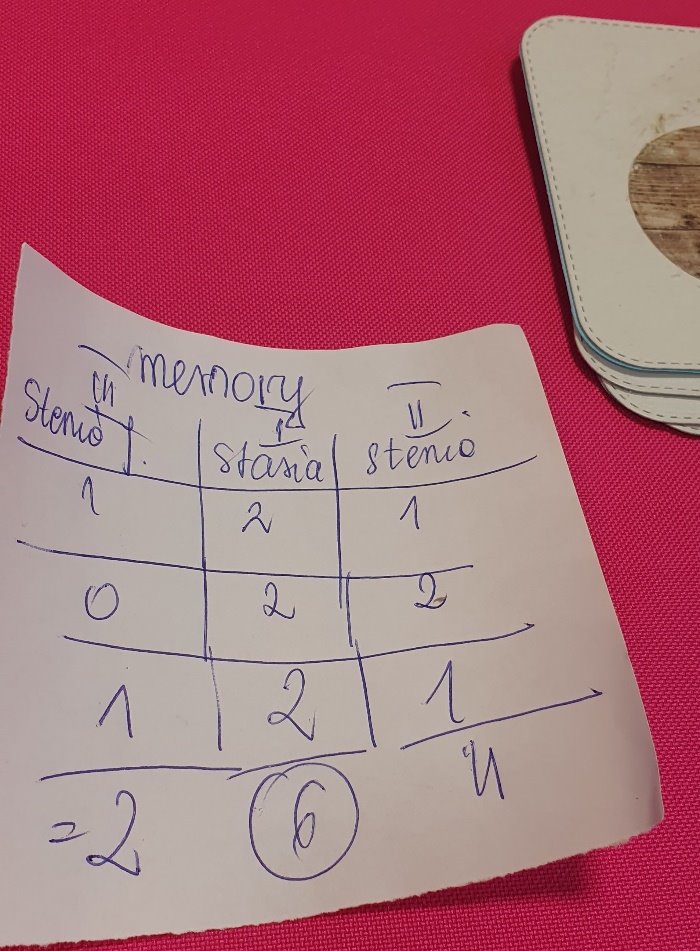 memory
III I II
Stenio J. Stasia Stenio
1 2 1
0 2 2
1 2 1
=2 6 4